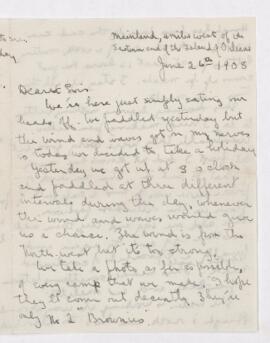 Mainland, a miles west of the
Eastern end of the Island of Orleans
June 26th 1903
Dearest Sis.
We is here just simply eating our
heads off. We paddled yesterday but
the wind and waves got on my nerves
so today we decided to take a holiday
Yesterday we got up at 3 o'clock
and paddled at three different
intervals during the day, whenever
the wind and waves would give
us a chance. The wind is from the
North-west but its to strong.
We take a photo, as far as possible,
of every camp that we made. I hope
they'll come out decently. They're
only No 2 "Brownies".